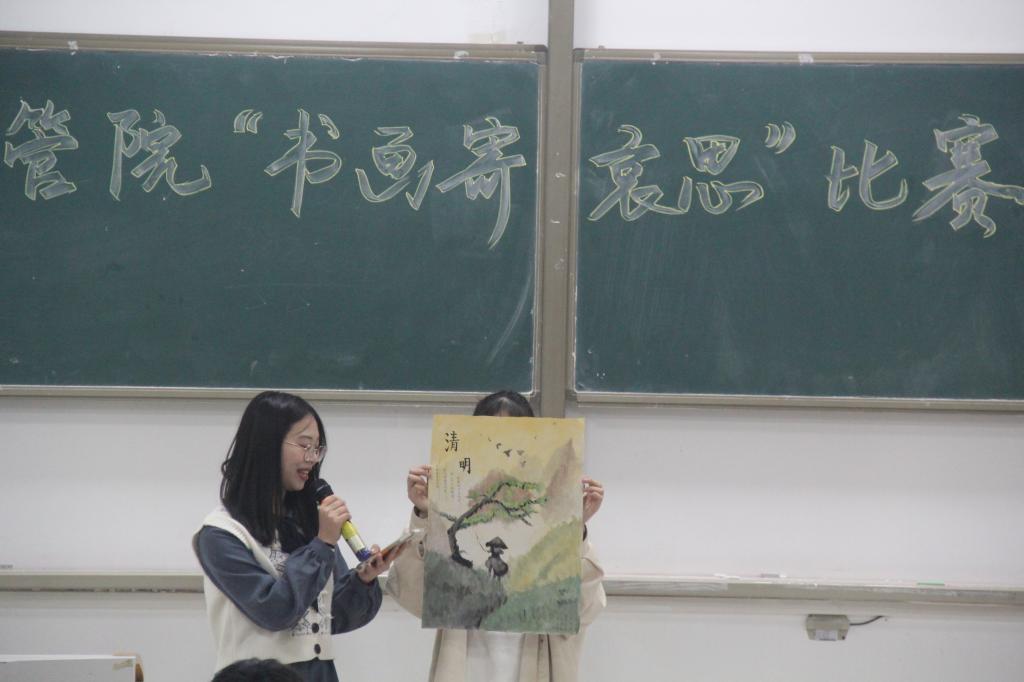 管院“书画寄哀思”比赛
清
明